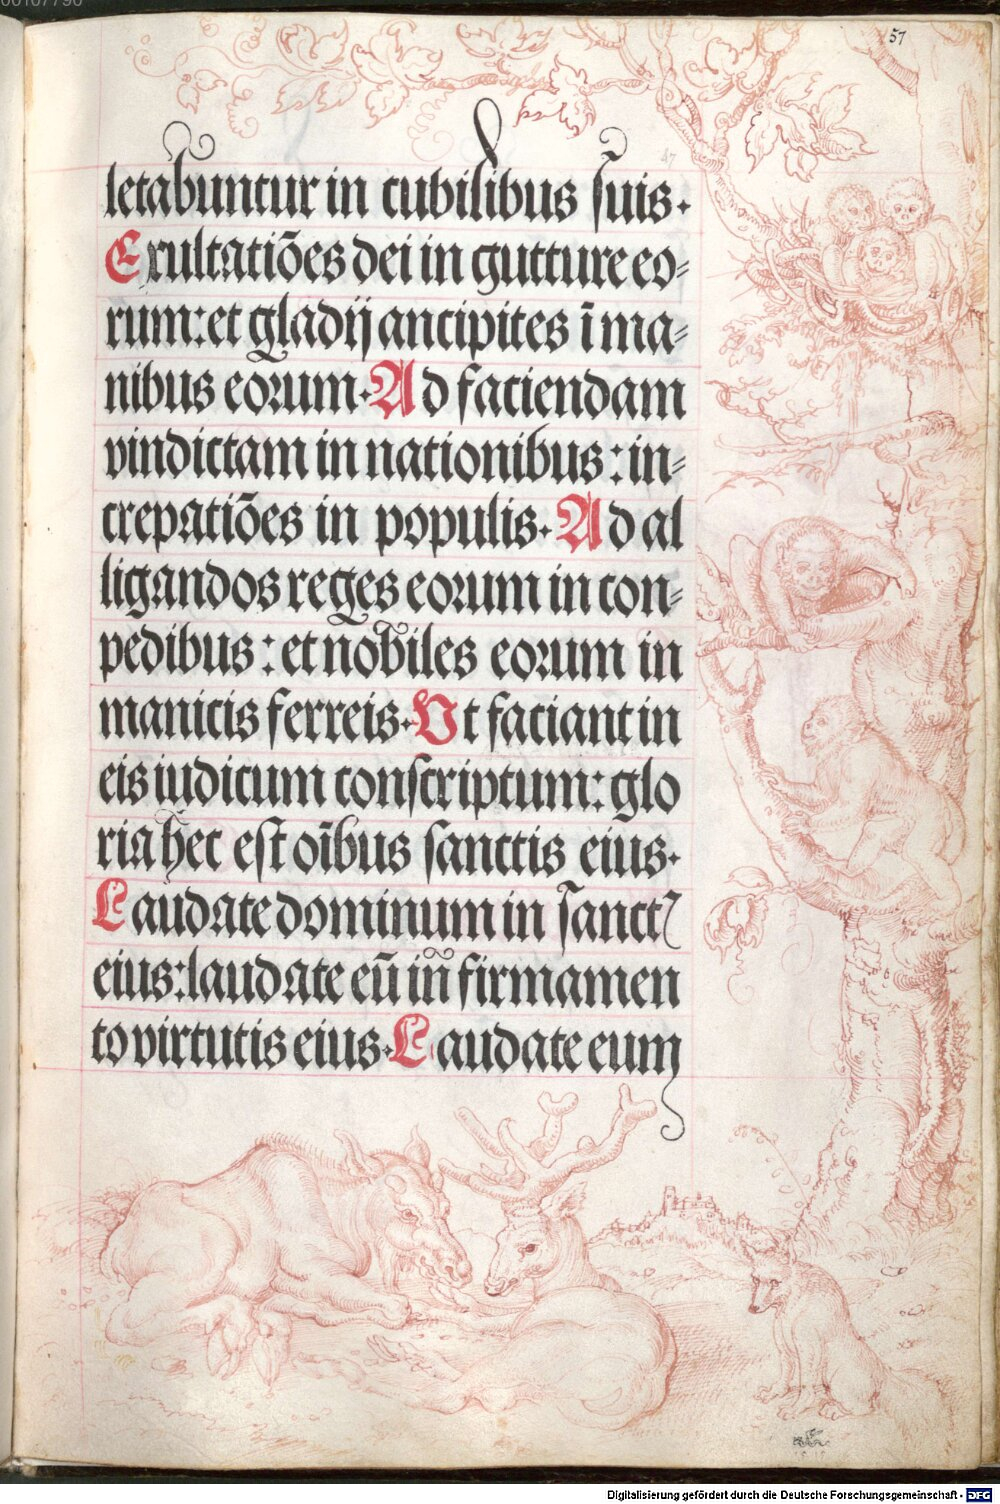 00107790
57
47
letabuntur in cubilibus suis.
Exultatiões dei in gutture eo=
rum: et gladij ancipites ī ma=
nibus eorum. Ad faciendam
vindictam in nationibus: in=
crepatiões in populis. Ad al
ligandos reges eorum in con=
pedibus: et nobiles eorum in
manicis ferreis. Vt faciant in
eis iudicum conscriptum: glo
ria hec est oībus sanctis eius.
Laudate dominum in sanctꝭ
eius: laudate eū in firmamen
to virtutis eius. Laudate eum
Digitalisierung gefördert durch die Deutsche Forschungsgemeinschaft - DFG